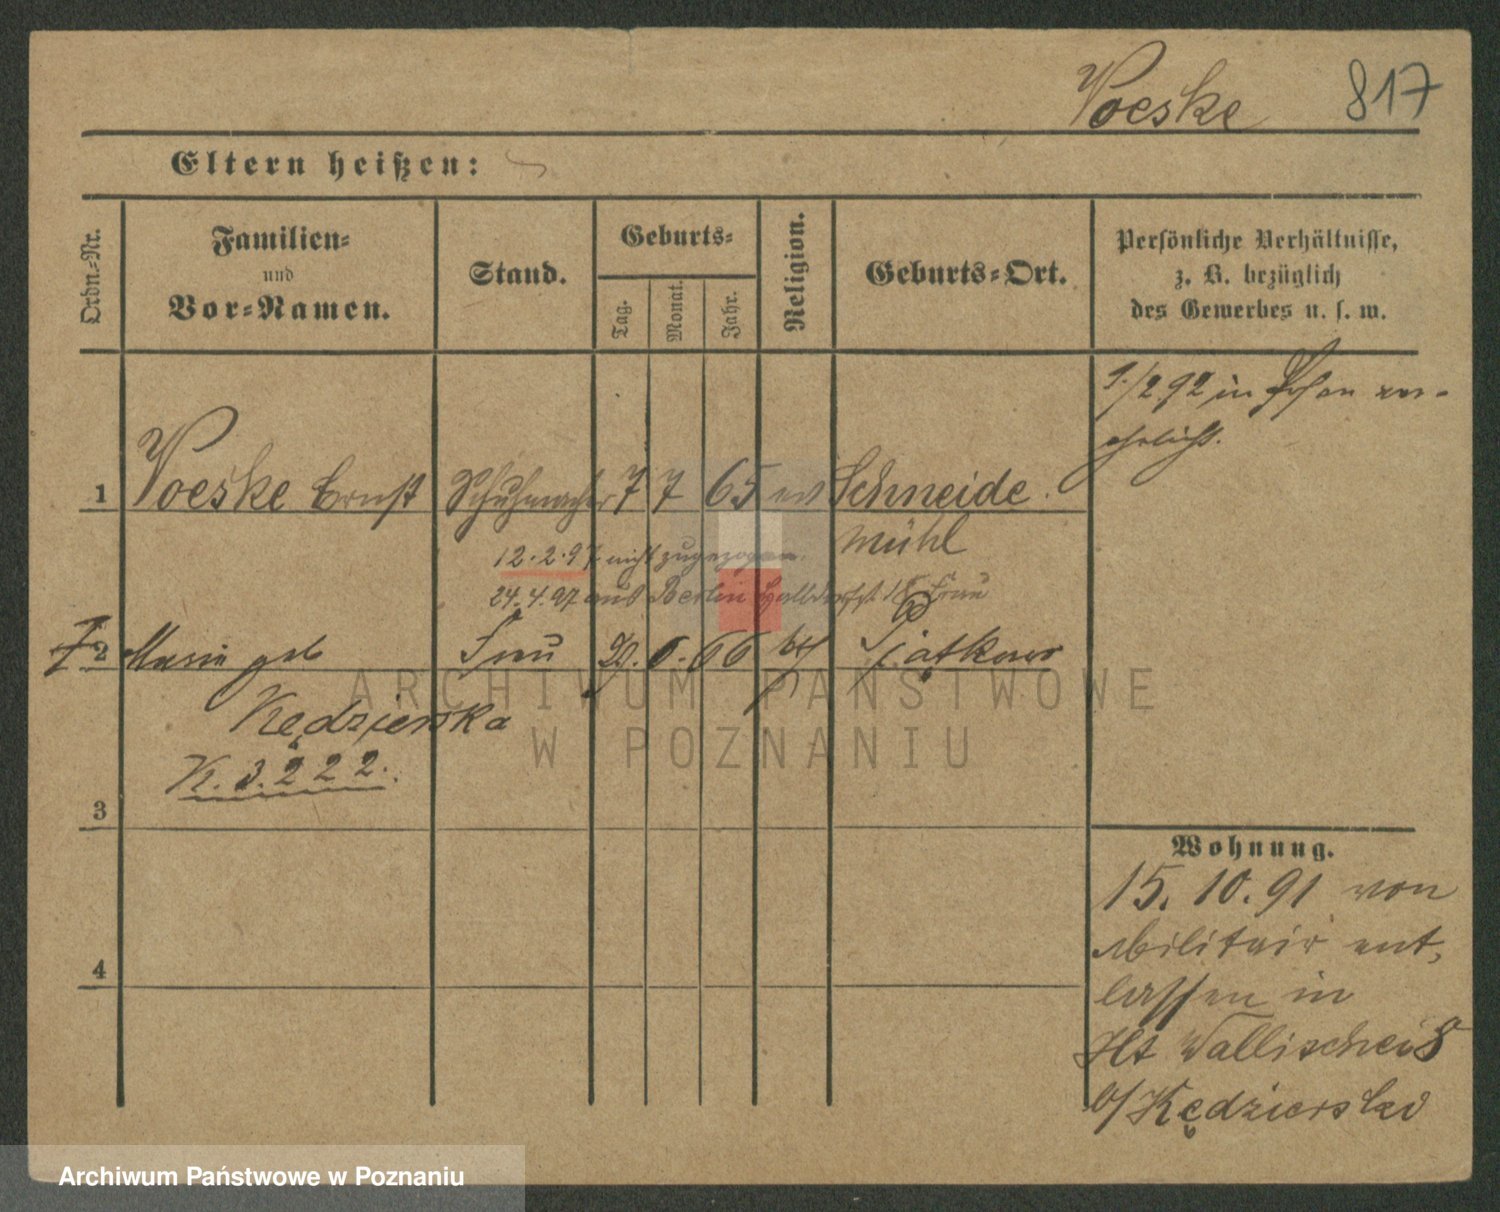 Voeske 817
Eltern heißen:
Ordn.-Nr.
Familien-
und
Vor-Namen.
Stand.
Geburts-
Tag.
Monat.
Jahr.
Religion.
Geburts-Ort.
Persönliche Verhältnisse,
z. B. bezüglich
des Gewerbes u. s. w.
1./2 92 in Posen ver-
ehelicht.
1 Voeske Ernst Schuhmacher 7 7 65 ev Schneide
mühl
12.2.97 nicht zugezogen.
24.4.97 aus Berlin 18 Frau
2 Marie geb Frau 6. 66 kth Piątkowo
Kędzierska
K. 3222.
3
4
Wohnung.
15. 10. 91 von
Militair ent,
lassen in
Wallischei 8
b/ Kędzierski
ARCHIWUM PAŃSTWOWE
W POZNANIU
Archiwum Państwowe w Poznaniu